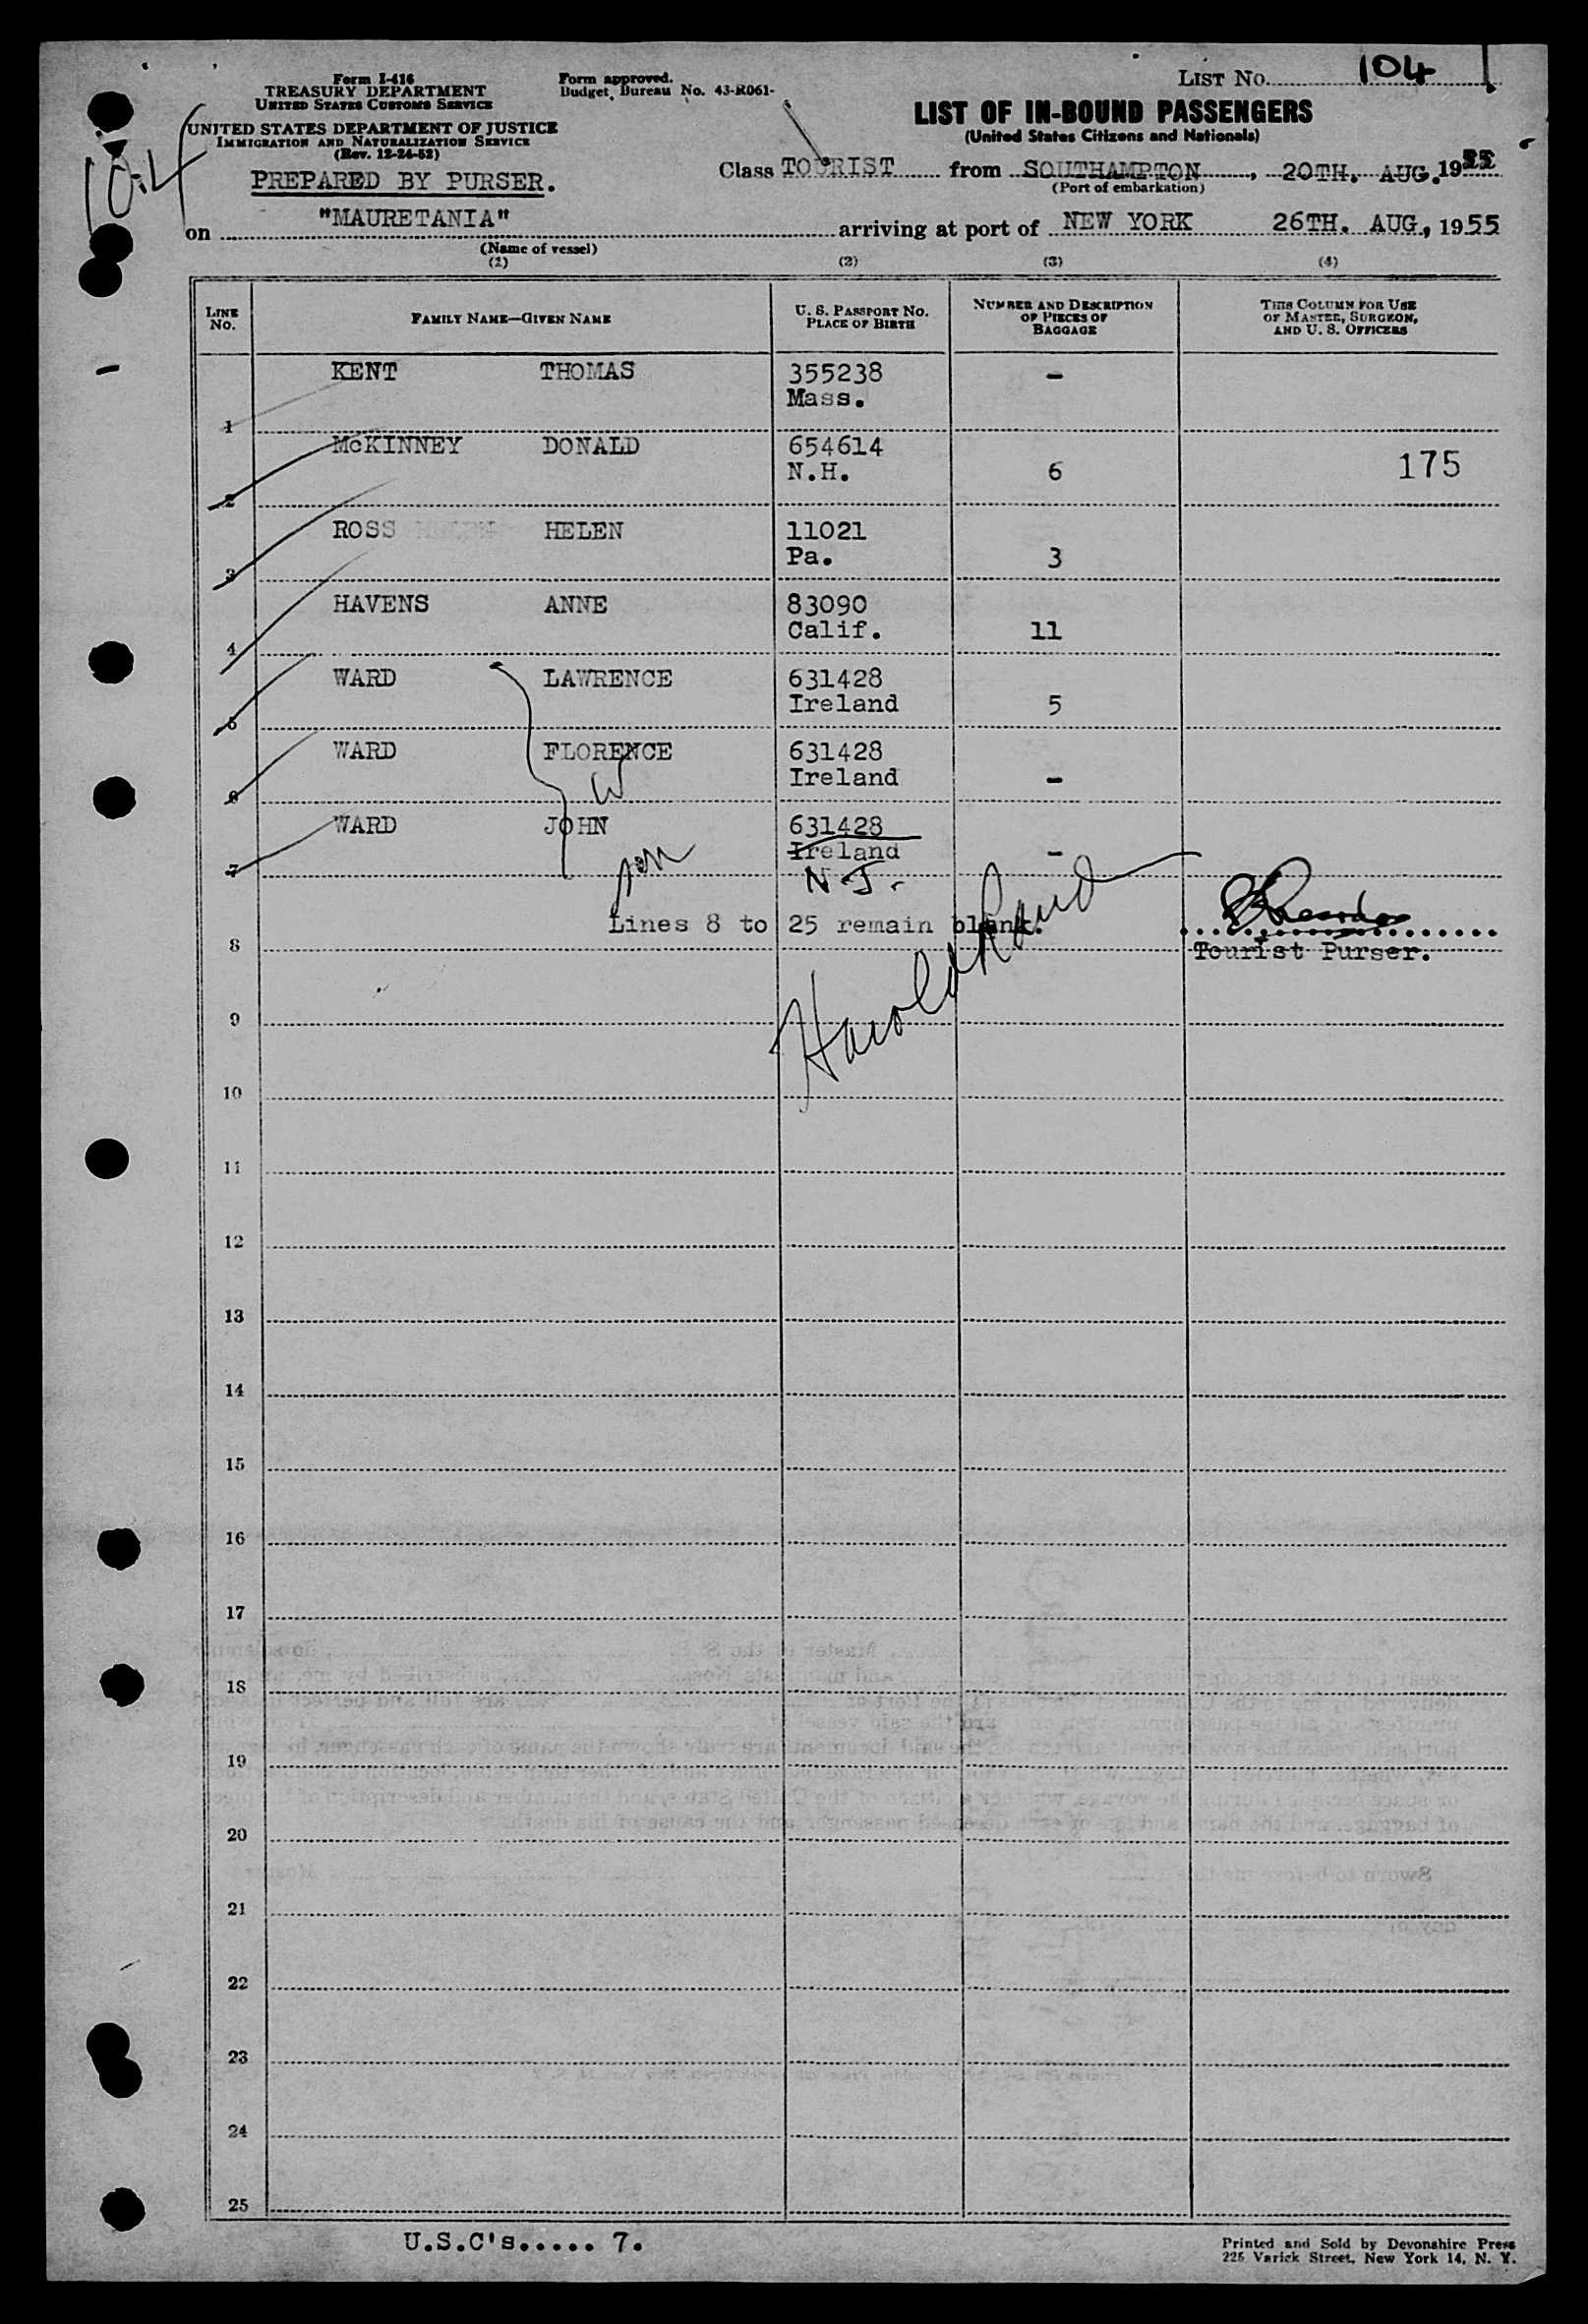 LIST No. 104
Form I-416
TREASURY DEPARTMENT
UNITED STATES CUSTOMS SERVICE
Form approved.
Budget Bureau No. 43-R061-
UNITED STATES DEPARTMENT OF JUSTICE
IMMIGRATION AND NATURALIZATION SERVICE
(Rev. 12-24-52)
104
LIST OF IN-BOUND PASSENGERS
(United States Citizens and Nationals)
PREPARED BY PURSER.
Class TOURIST from SOUTHAMPTON, 20TH. AUG. 1955
(Port of embarkation)
on "MAURETANIA" arriving at port of NEW YORK 26TH. AUG., 1955
(Name of vessel)
(1) (2) (3) (4)
LINE No. FAMILY NAME—GIVEN NAME U. S. PASSPORT No. PLACE OF BIRTH NUMBER AND DESCRIPTION OF PIECES OF BAGGAGE THIS COLUMN FOR USE OF MASTER, SURGEON, AND U. S. OFFICERS
1 KENT THOMAS 355238 Mass. -
2 McKINNEY DONALD 654614 N.H. 6 175
3 ROSS HELEN 11021 Pa. 3
4 HAVENS ANNE 83090 Calif. 11
5 WARD LAWRENCE 631428 Ireland 5
6 WARD FLORENCE W 631428 Ireland -
7 WARD JOHN son 631428 Ireland N.J. -
Lines 8 to 25 remain blank.
8 Tourist Purser.
Harold Rand
9
10
11
12
13
14
15
16
17
18
19
20
21
22
23
24
25
U.S.C's..... 7.
Printed and Sold by Devonshire Press
225 Varick Street, New York 14, N. Y.